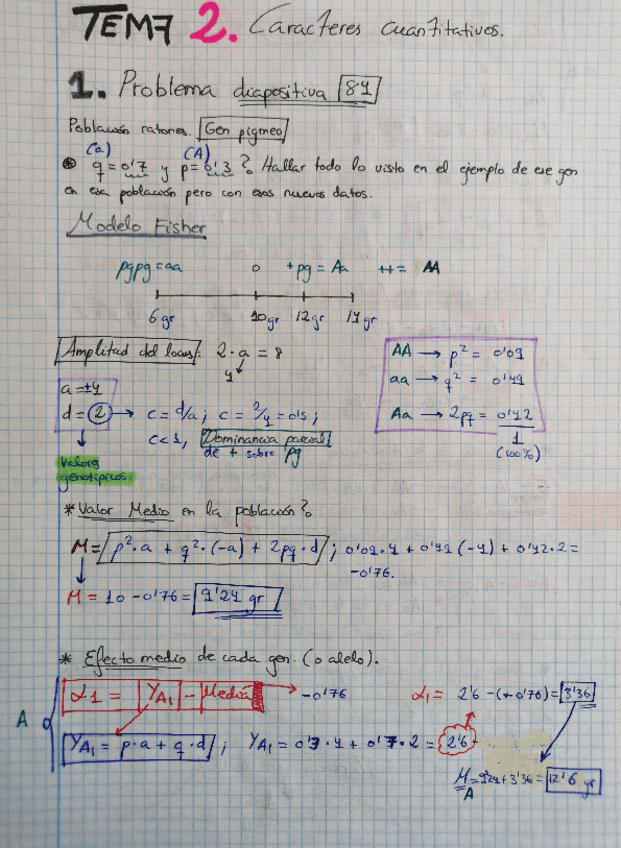 TEMA 2. Caracteres cuantitativos.
1. Problema diapositiva 84
Población ratones. Gen pigmeo
(a) (A)
* q = 0'7 y p = 0'3 ?. Hallar todo lo visto en el ejemplo de ese gen
en esa población pero con esos nuevos datos.
Modelo Fisher
pgpg = aa 0 +pg = Aa ++ = AA
6 gr 10 gr 12 gr 14 gr
Amplitud del locus: 2·a = 8
4
a = ±4
d = 2 → c = d/a; c = 2/4 = 0'5;
c < 1, Dominancia parcial
de + sobre pg
Valores
genotípicos
AA → p² = 0'09
aa → q² = 0'49
Aa → 2pq = 0'42
1
(100%)
* Valor Medio en la población?.
M = p²·a + q²·(-a) + 2pq·d ; 0'09·4 + 0'49(-4) + 0'42·2 =
-0'76.
M = 10 - 0'76 = 9'24 gr
* Efecto medio de cada gen. (o alelo).
A
α1 = YA1 - Media → -0'76
α1 = 2'6 - (-0'76) = 3'36
YA1 = p·a + q·d ; YA1 = 0'3·4 + 0'7·2 = 2'6
M = 9'24 + 3'36 = 12'6 gr
A